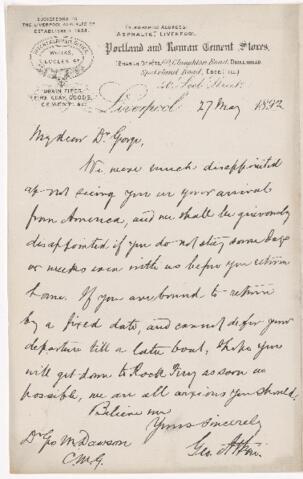 SUCCESSORS TO
THE LIVERPOOL
ESTABLISHED
TELEGRAPHIC ADDRESS:
"ASPHALTE," LIVERPOOL.
Portland and Roman Cement Stores,
WORKS,
DRAIN PIPES,
FIRE CLAY GOODS,
CEMENT, &c.
Liverpool 27 May 1892
My dear Dr George,
We were much disappointed
at not seeing you on your arrival
from America, and we shall be grievously
disappointed if you do not stay some days
or weeks even with us before you return
home. If you are bound to return
by a fixed date, and cannot defer your
departure till a later boat, I hope you
will get down to Rock Ferry as soon as
possible, we are all anxious you should,
Believe me
Yours Sincerely
Dr Geo M Dawson
Geo. Atkin
C.M.G.